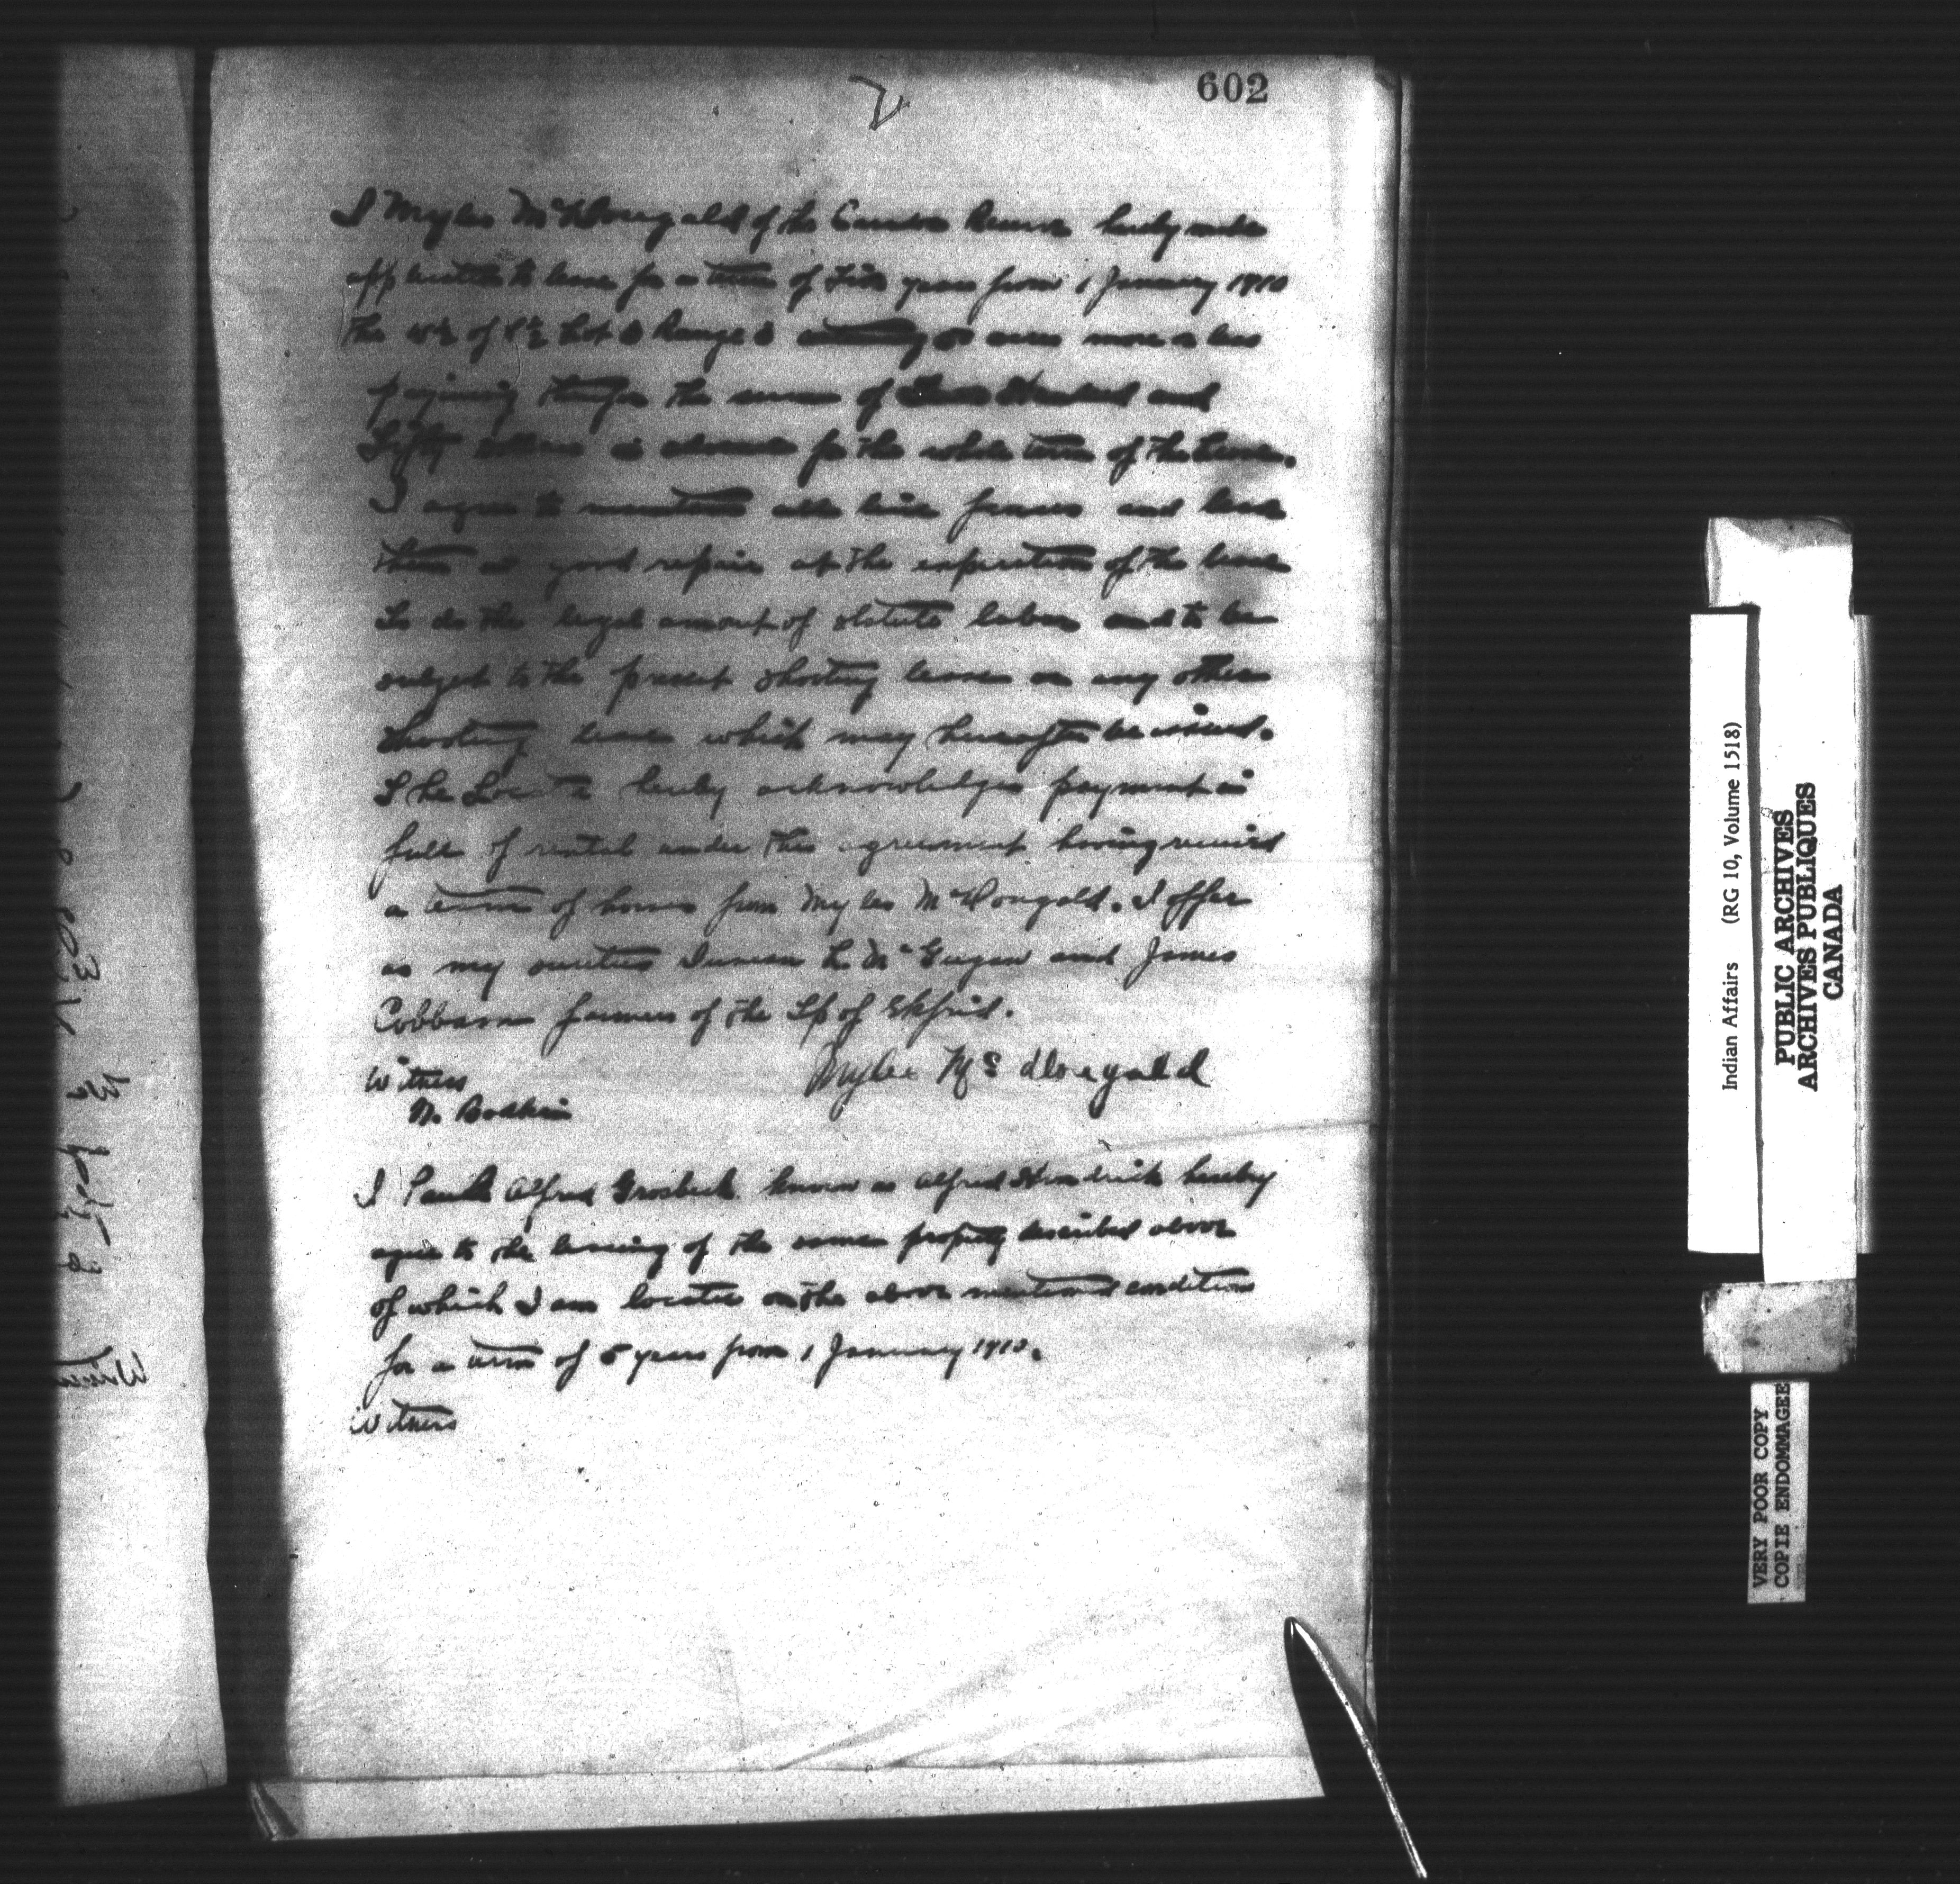 602
I Myles McDougald of the Caradoc Reserve hereby make
application to lease for a term of Five years from 1 January 1910
the W½ of Lot Range containing acres more or less
paying therefor the sum of Hundred and
Fifty dollars in advance for the whole term of the lease.
I agree to maintain all line fences and leave
them in good repair at the expiration of the lease
to do the legal amount of statute labor and to be
subject to the present shooting lease or any other
shooting lease which may hereafter be issued.
I the Locatee hereby acknowledge payment in
full of rental under this agreement having received
a team of horses from Myles McDougald. I offer
as my sureties Duncan L McGugan and James
Cobban farmers of the Tp of Ekfrid.
Witness
Myles Mc dougald
M. Bodkin
I Alfred Grosbeck known as Alfred Hendrick hereby
agree to the leasing of the same property described above
of which I am locatee on the above mentioned conditions
for a term of 5 years from 1 January 1910.
Witness
Indian Affairs (RG 10, Volume 1518)
PUBLIC ARCHIVES
ARCHIVES PUBLIQUES
CANADA
VERY POOR COPY
COPIE ENDOMMAGEE